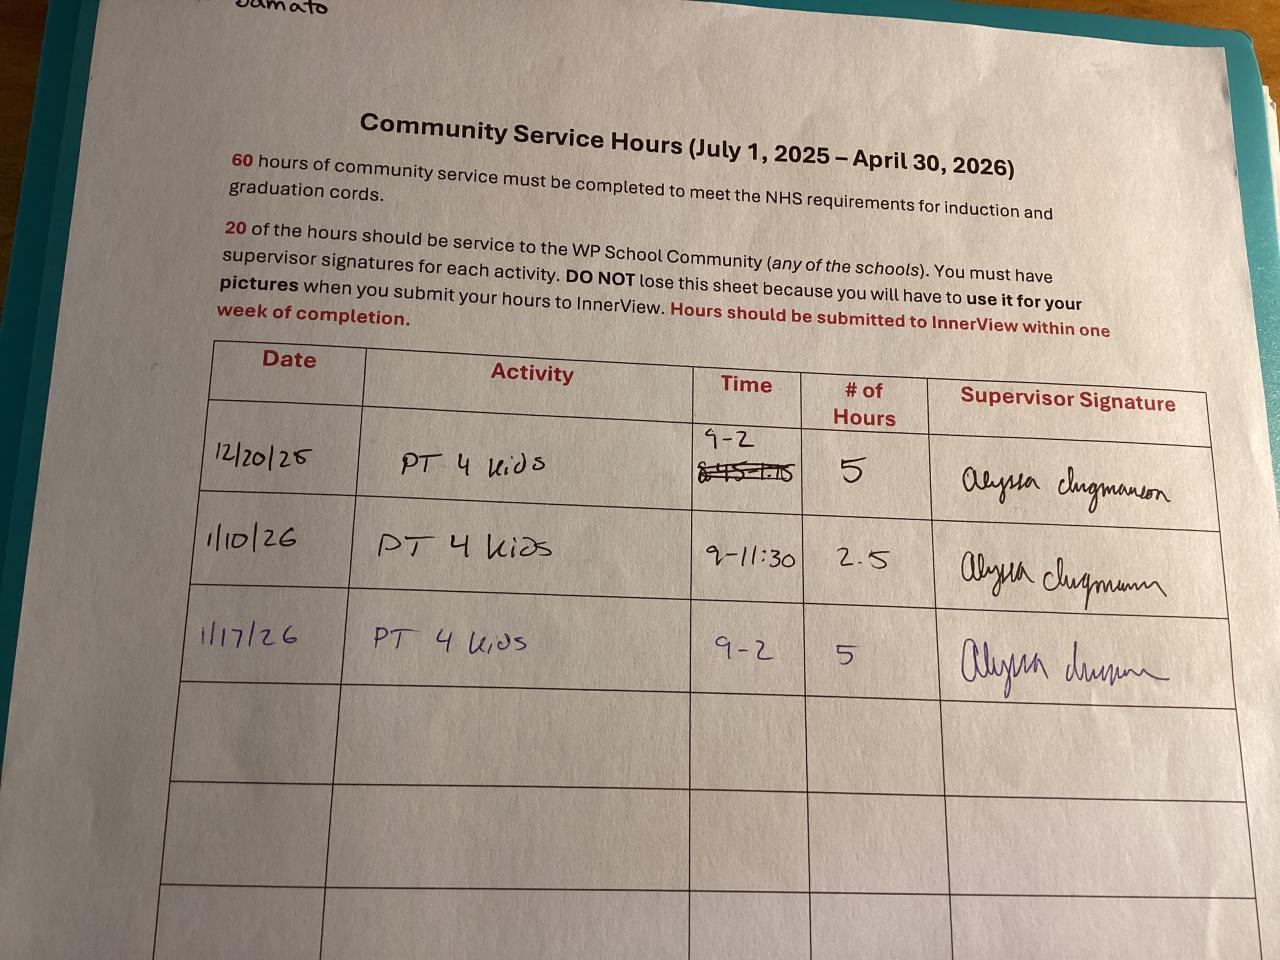 Community Service Hours (July 1, 2025 – April 30, 2026)
60 hours of community service must be completed to meet the NHS requirements for induction and
graduation cords.
20 of the hours should be service to the WP School Community (any of the schools). You must have
supervisor signatures for each activity. DO NOT lose this sheet because you will have to use it for your
pictures when you submit your hours to InnerView. Hours should be submitted to InnerView within one
week of completion.
Date Activity Time # of Hours Supervisor Signature
12/20/25 PT 4 Kids 9-2 5 Alyssa
1/10/26 PT 4 Kids 9-11:30 2.5 Alyssa
1/17/26 PT 4 Kids 9-2 5 Alyssa